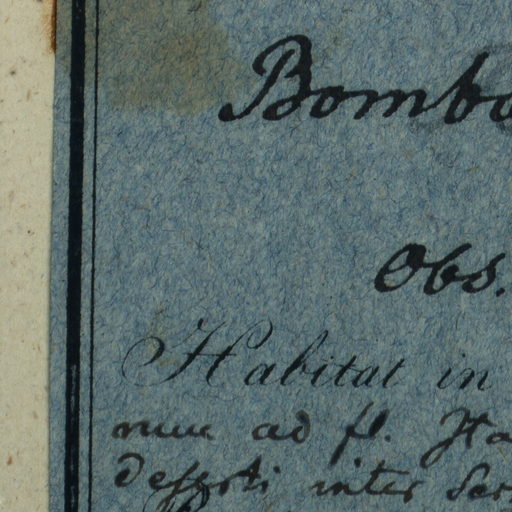 Bombo
Obs.
Habitat in
ad fl. Ha
deserti inter Ser